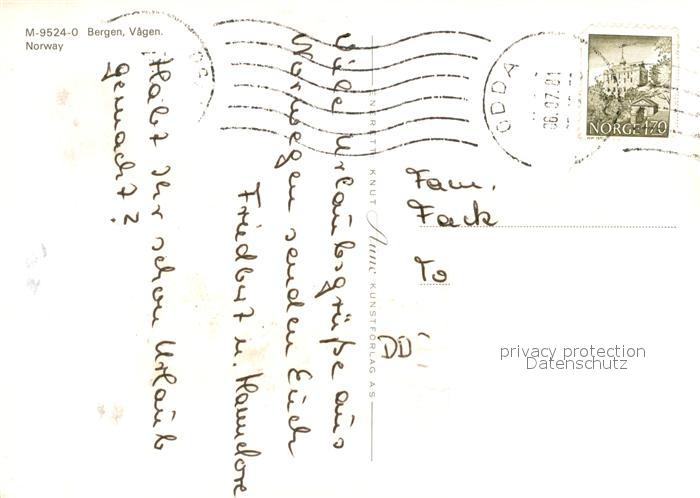 M-9524-0 Bergen, Vågen.
Norway
Viele Urlaubsgrüße aus
Norwegen senden Euch
Friedbert u. Hannelore
Habt Ihr schon Urlaub
gemacht?
ENERETT: KNUT Aune KUNSTFORLAG A.S
ODDA
06.07.81
NORGE 170
Fam.
Fack
To
DD
privacy protection
Datenschutz